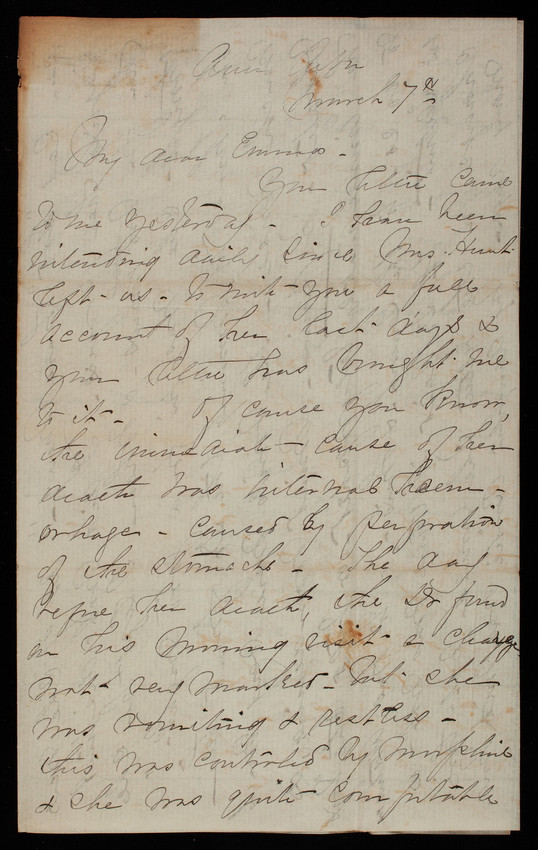 March 7th
My dear Emma -
Your letter came
to me yesterday - I have been
intending daily since Mrs. Hunt
left - us - to write you a full
account of her last days &
your letter has brought me
to it - Of cause you know,
the immediate - cause of her
death was internal hem -
orhage - caused by perforation
of the stomach - The day
before her death, the Dr found
on his morning visit - a change
not very marked - but she
was vomiting & restless -
this was controled by morphine
& she was quite comfortable